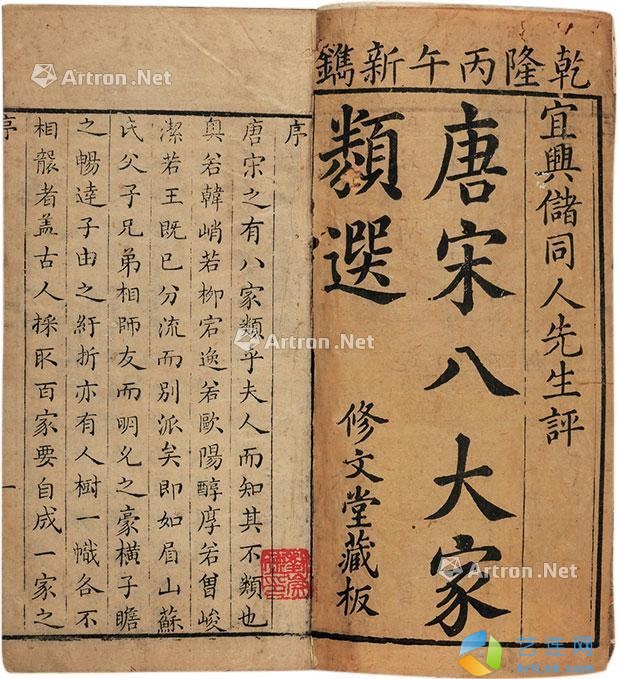 乾隆丙午新鐫
宜興儲同人先生評
唐宋八大家
類選
修文堂藏板
序
唐宋之有八家類乎夫人而知其不類也
奧若韓峭若柳宕逸若歐陽醇厚若曾峻
潔若王既已分流而別派矣即如眉山蘇
氏父子兄弟相師友而明允之豪橫子瞻
之暢達子由之紆折亦有人樹一幟各不
相襲者盖古人採取百家要自成一家之
序 一
Artron.Net
Artron.Net
Artron.Net
Artron.Net
Artron.Net